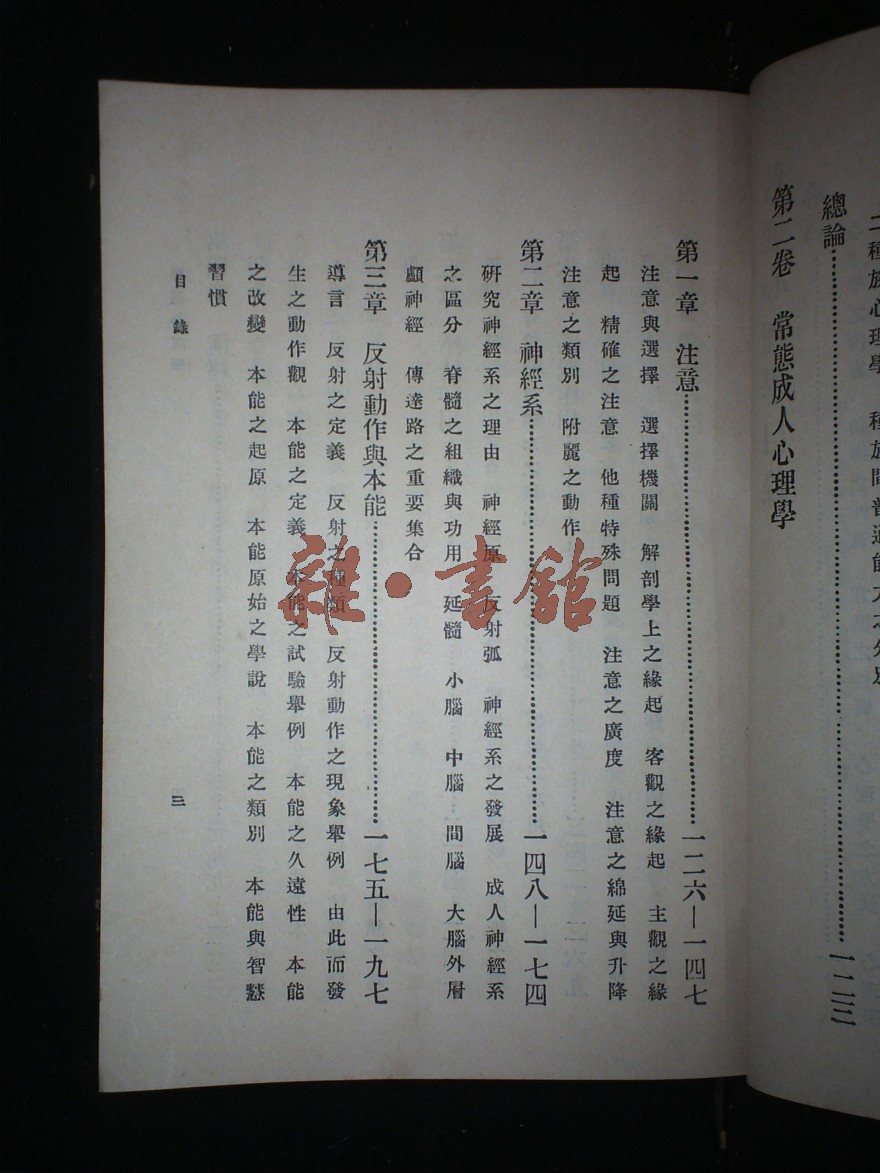 二種族心理學　種族間普通能力之分別
總論……………………一二三
第二卷　常態成人心理學
第一章　注意……………………一二六—一四七
注意與選擇　選擇機關　解剖學上之緣起　客觀之緣起　主觀之緣
起　精確之注意　他種特殊問題　注意之廣度　注意之綿延與升降
注意之類別　附麗之動作
第二章　神經系……………………一四八—一七四
研究神經系之理由　神經原　反射弧　神經系之發展　成人神經系
之區分　脊髓之組織與功用　延髓　小腦　中腦　間腦　大腦外層
顱神經　傳達路之重要集合
第三章　反射動作與本能……………………一七五—一九七
導言　反射之定義　反射之種類　反射動作之現象舉例　由此而發
生之動作觀　本能之定義　本能之試驗舉例　本能之久遠性　本能
之改變　本能之起原　本能原始之學說　本能之類別　本能與智慧
習慣
目錄　三
雜·書館